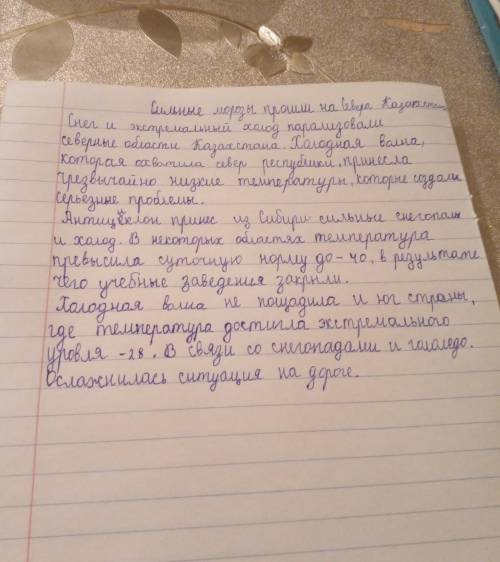 Сильные морозы прошли на Севера Казахстана
Снег и экстремальный холод парализовали
северные области Казахстана. Холодная волна,
которая охватила север республики, принесла
чрезвычайно низкие температуры, которые создали
серьезные проблемы.
Антициклон принес из Сибири сильные снегопады
и холод. В некоторых областях температура
превысила суточную норму до -40, в результате
чего учебные заведения закрыли.
Холодная волна не пощадила и юг страны,
где температура достигла экстремального
уровня -28. В связи со снегопадами и гололедо.
Ослажнилась ситуация на дороге.